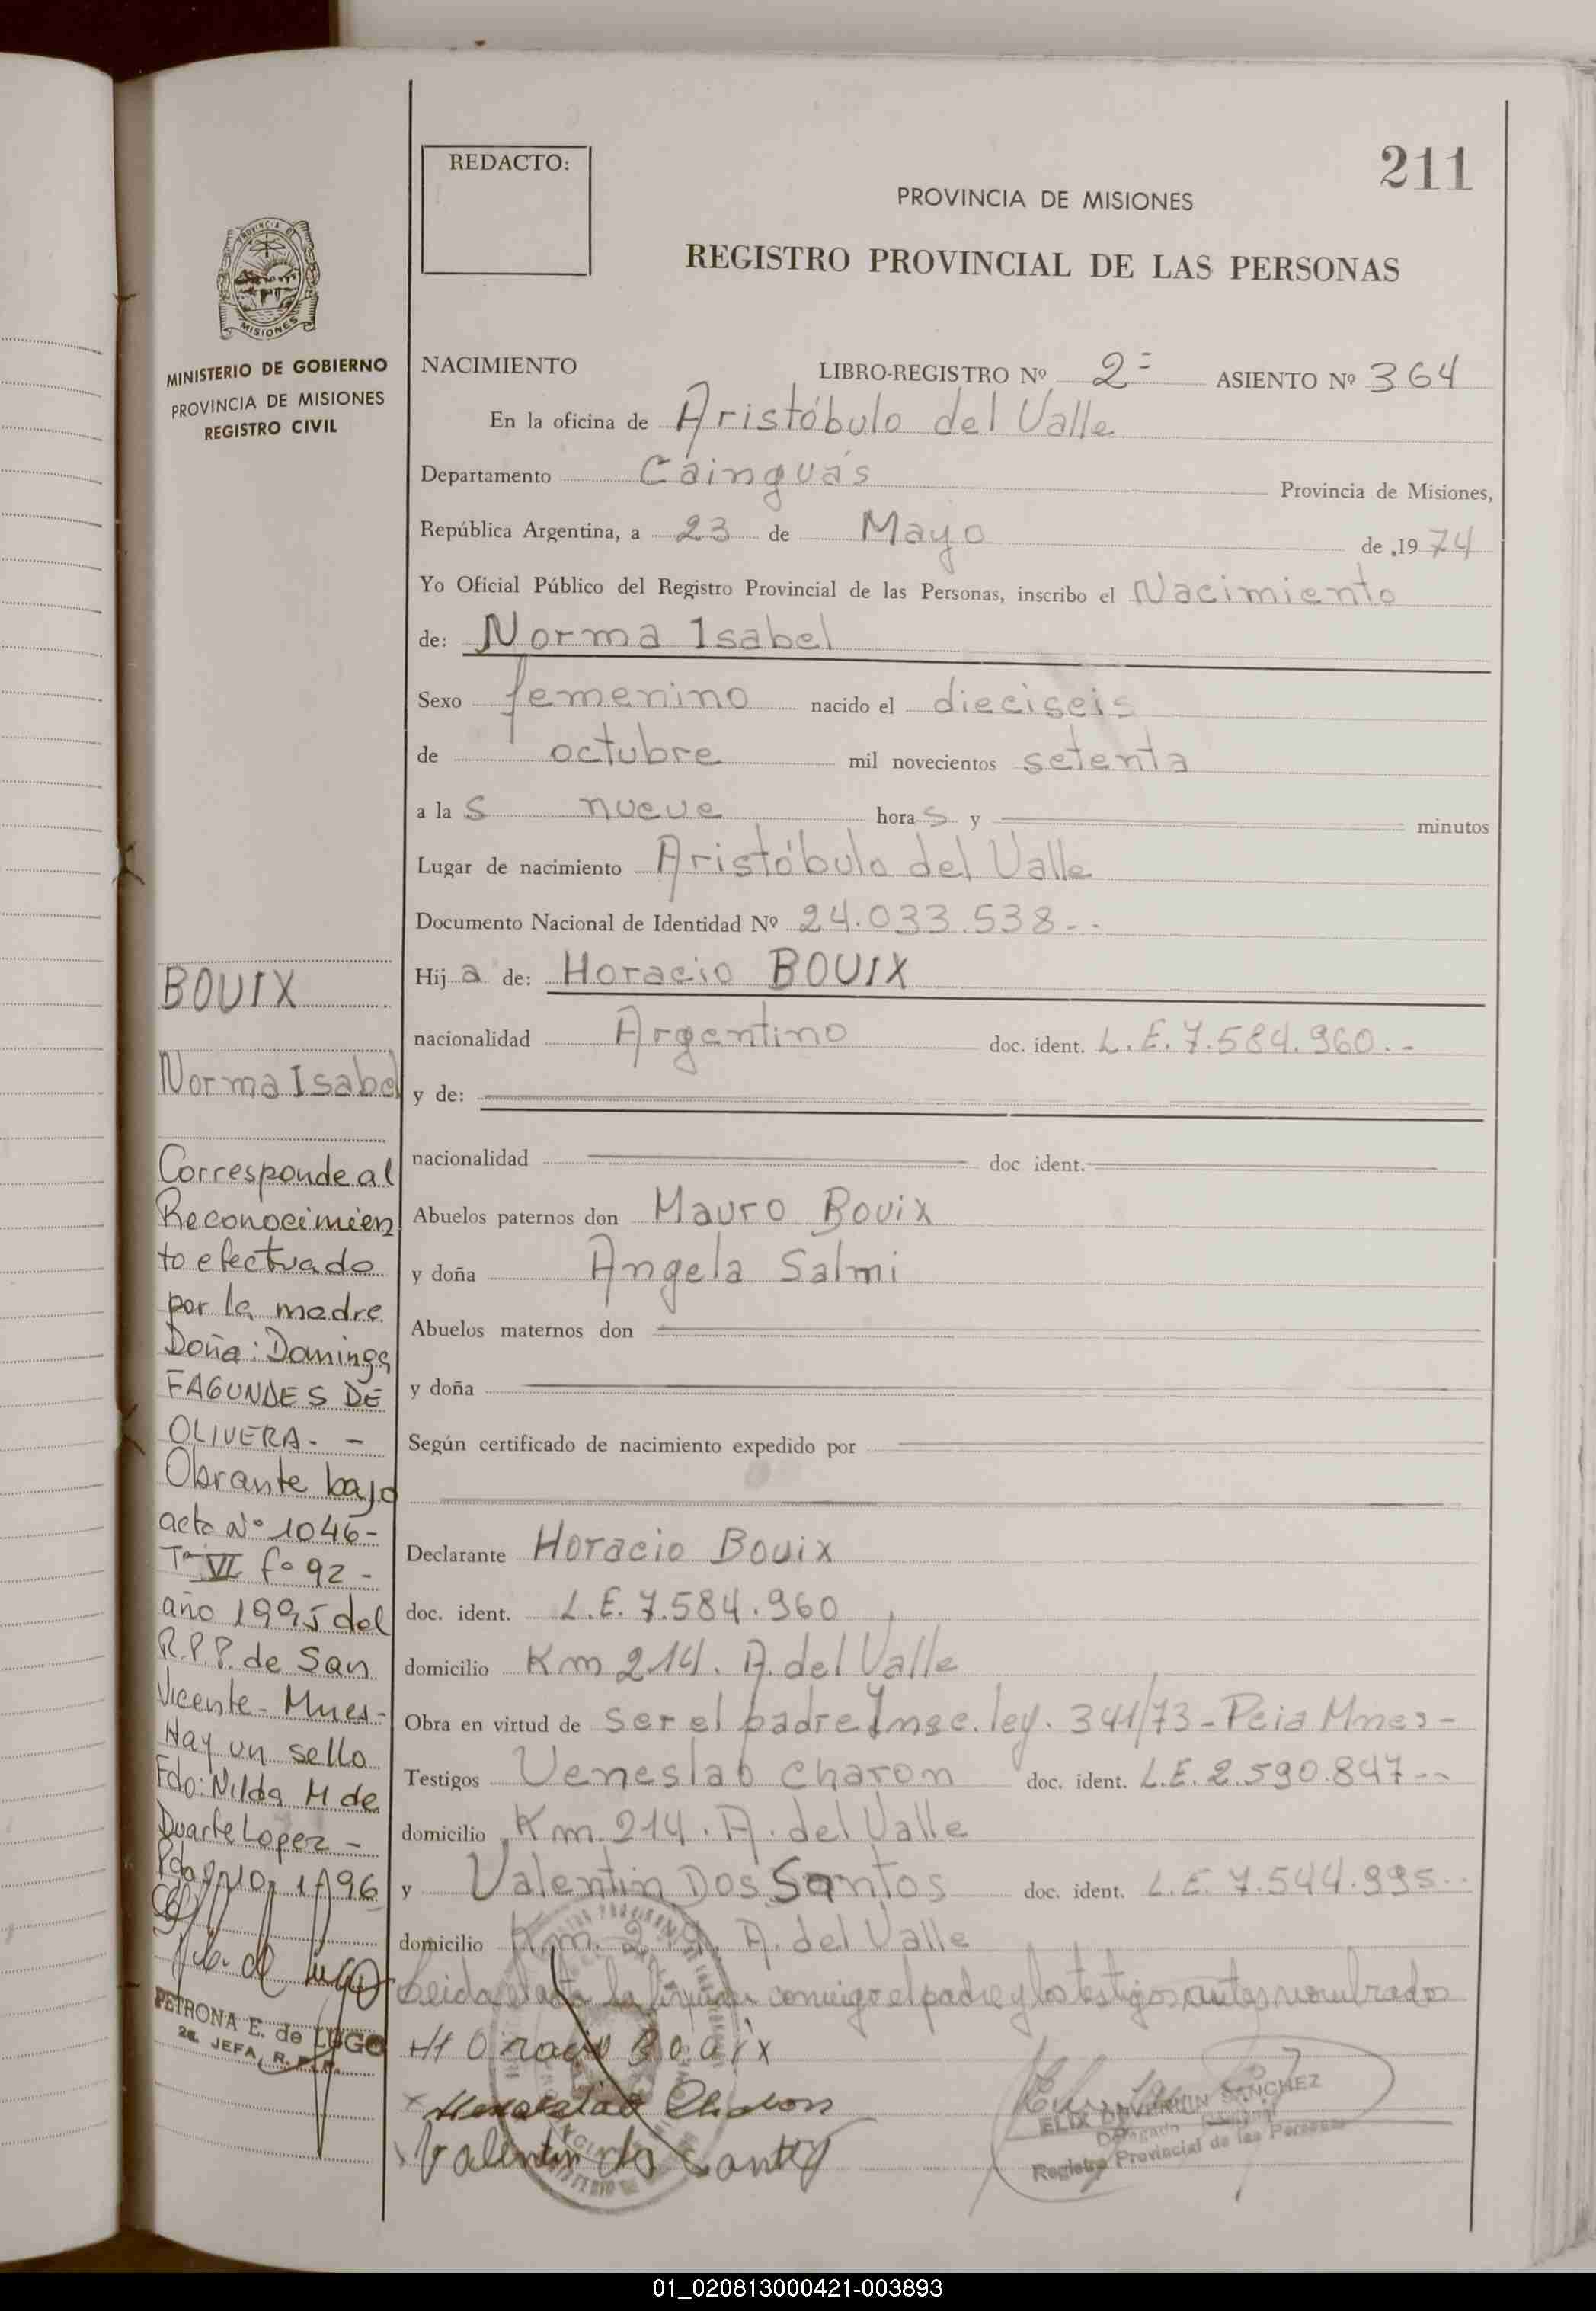 211
REDACTO:
PROVINCIA DE MISIONES
REGISTRO PROVINCIAL DE LAS PERSONAS
PROVINCIA DE
MISIONES
MINISTERIO DE GOBIERNO
PROVINCIA DE MISIONES
REGISTRO CIVIL
NACIMIENTO LIBRO-REGISTRO Nº 2- ASIENTO Nº 364
En la oficina de Aristóbulo del Valle
Departamento Cainguás Provincia de Misiones,
República Argentina, a 23 de Mayo de 1974
Yo Oficial Público del Registro Provincial de las Personas, inscribo el Nacimiento
de: Norma Isabel
Sexo femenino nacido el dieciseis
de octubre mil novecientos setenta
a la s nueve hora s y minutos
Lugar de nacimiento Aristóbulo del Valle
Documento Nacional de Identidad Nº 24.033.538--
Hij a de: Horacio BOUIX
nacionalidad Argentino doc. ident. L.E. 7.584.960.-
y de:
nacionalidad doc ident.
Abuelos paternos don Mauro Bouix
y doña Angela Salmi
Abuelos maternos don
y doña
Según certificado de nacimiento expedido por
Declarante Horacio Bouix
doc. ident. L.E. 7.584.960
domicilio Km 214. A. del Valle
Obra en virtud de ser el padre Insc. ley. 341/73-Pcia Mnes-
Testigos Veneslab Charon doc. ident. L.E. 2.590.847--
domicilio Km. 214. A. del Valle
y Valentin Dos Santos doc. ident. L.E. 7.544.995--
domicilio Km. 214. A. del Valle
Leida el acta la firman conmigo el padre y los testigos antes nombrados
Horacio Bouix
Charon
Valentin dos Santos
SANCHEZ
Delegado
Registro Provincial de las Personas
BOUIX
Norma Isabel
Corresponde al
Reconocimien
to efectuado
por la madre
Doña: Dominga
FAGUNDES DE
OLIVERA. -
Obrante bajo
acta Nº 1046-
Tº VI fº 92 -
año 1995 del
R.P.P. de San
Vicente- Mnes-
Hay un sello
Fdo: Nilda M de
Duarte Lopez -
1996
PETRONA E. de LUGO
2a. JEFA R.P.P.
01_020813000421-003893